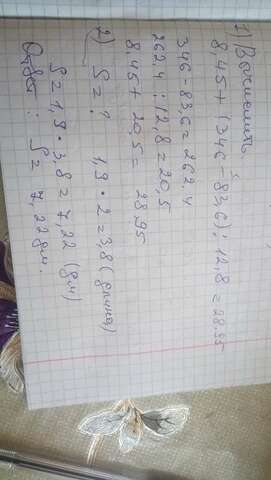 1) Вычислить
8,45 + (346 - 83,6) : 12,8 = 28.95
346 - 83,6 = 262,4
262,4 : 12,8 = 20,5
8,45 + 20,5 = 28,95
2) S = ? 1,9 · 2 = 3,8 (длина)
S = 1,9 · 3,8 = 7,22 (дм)
Ответ : S = 7,22 дм.